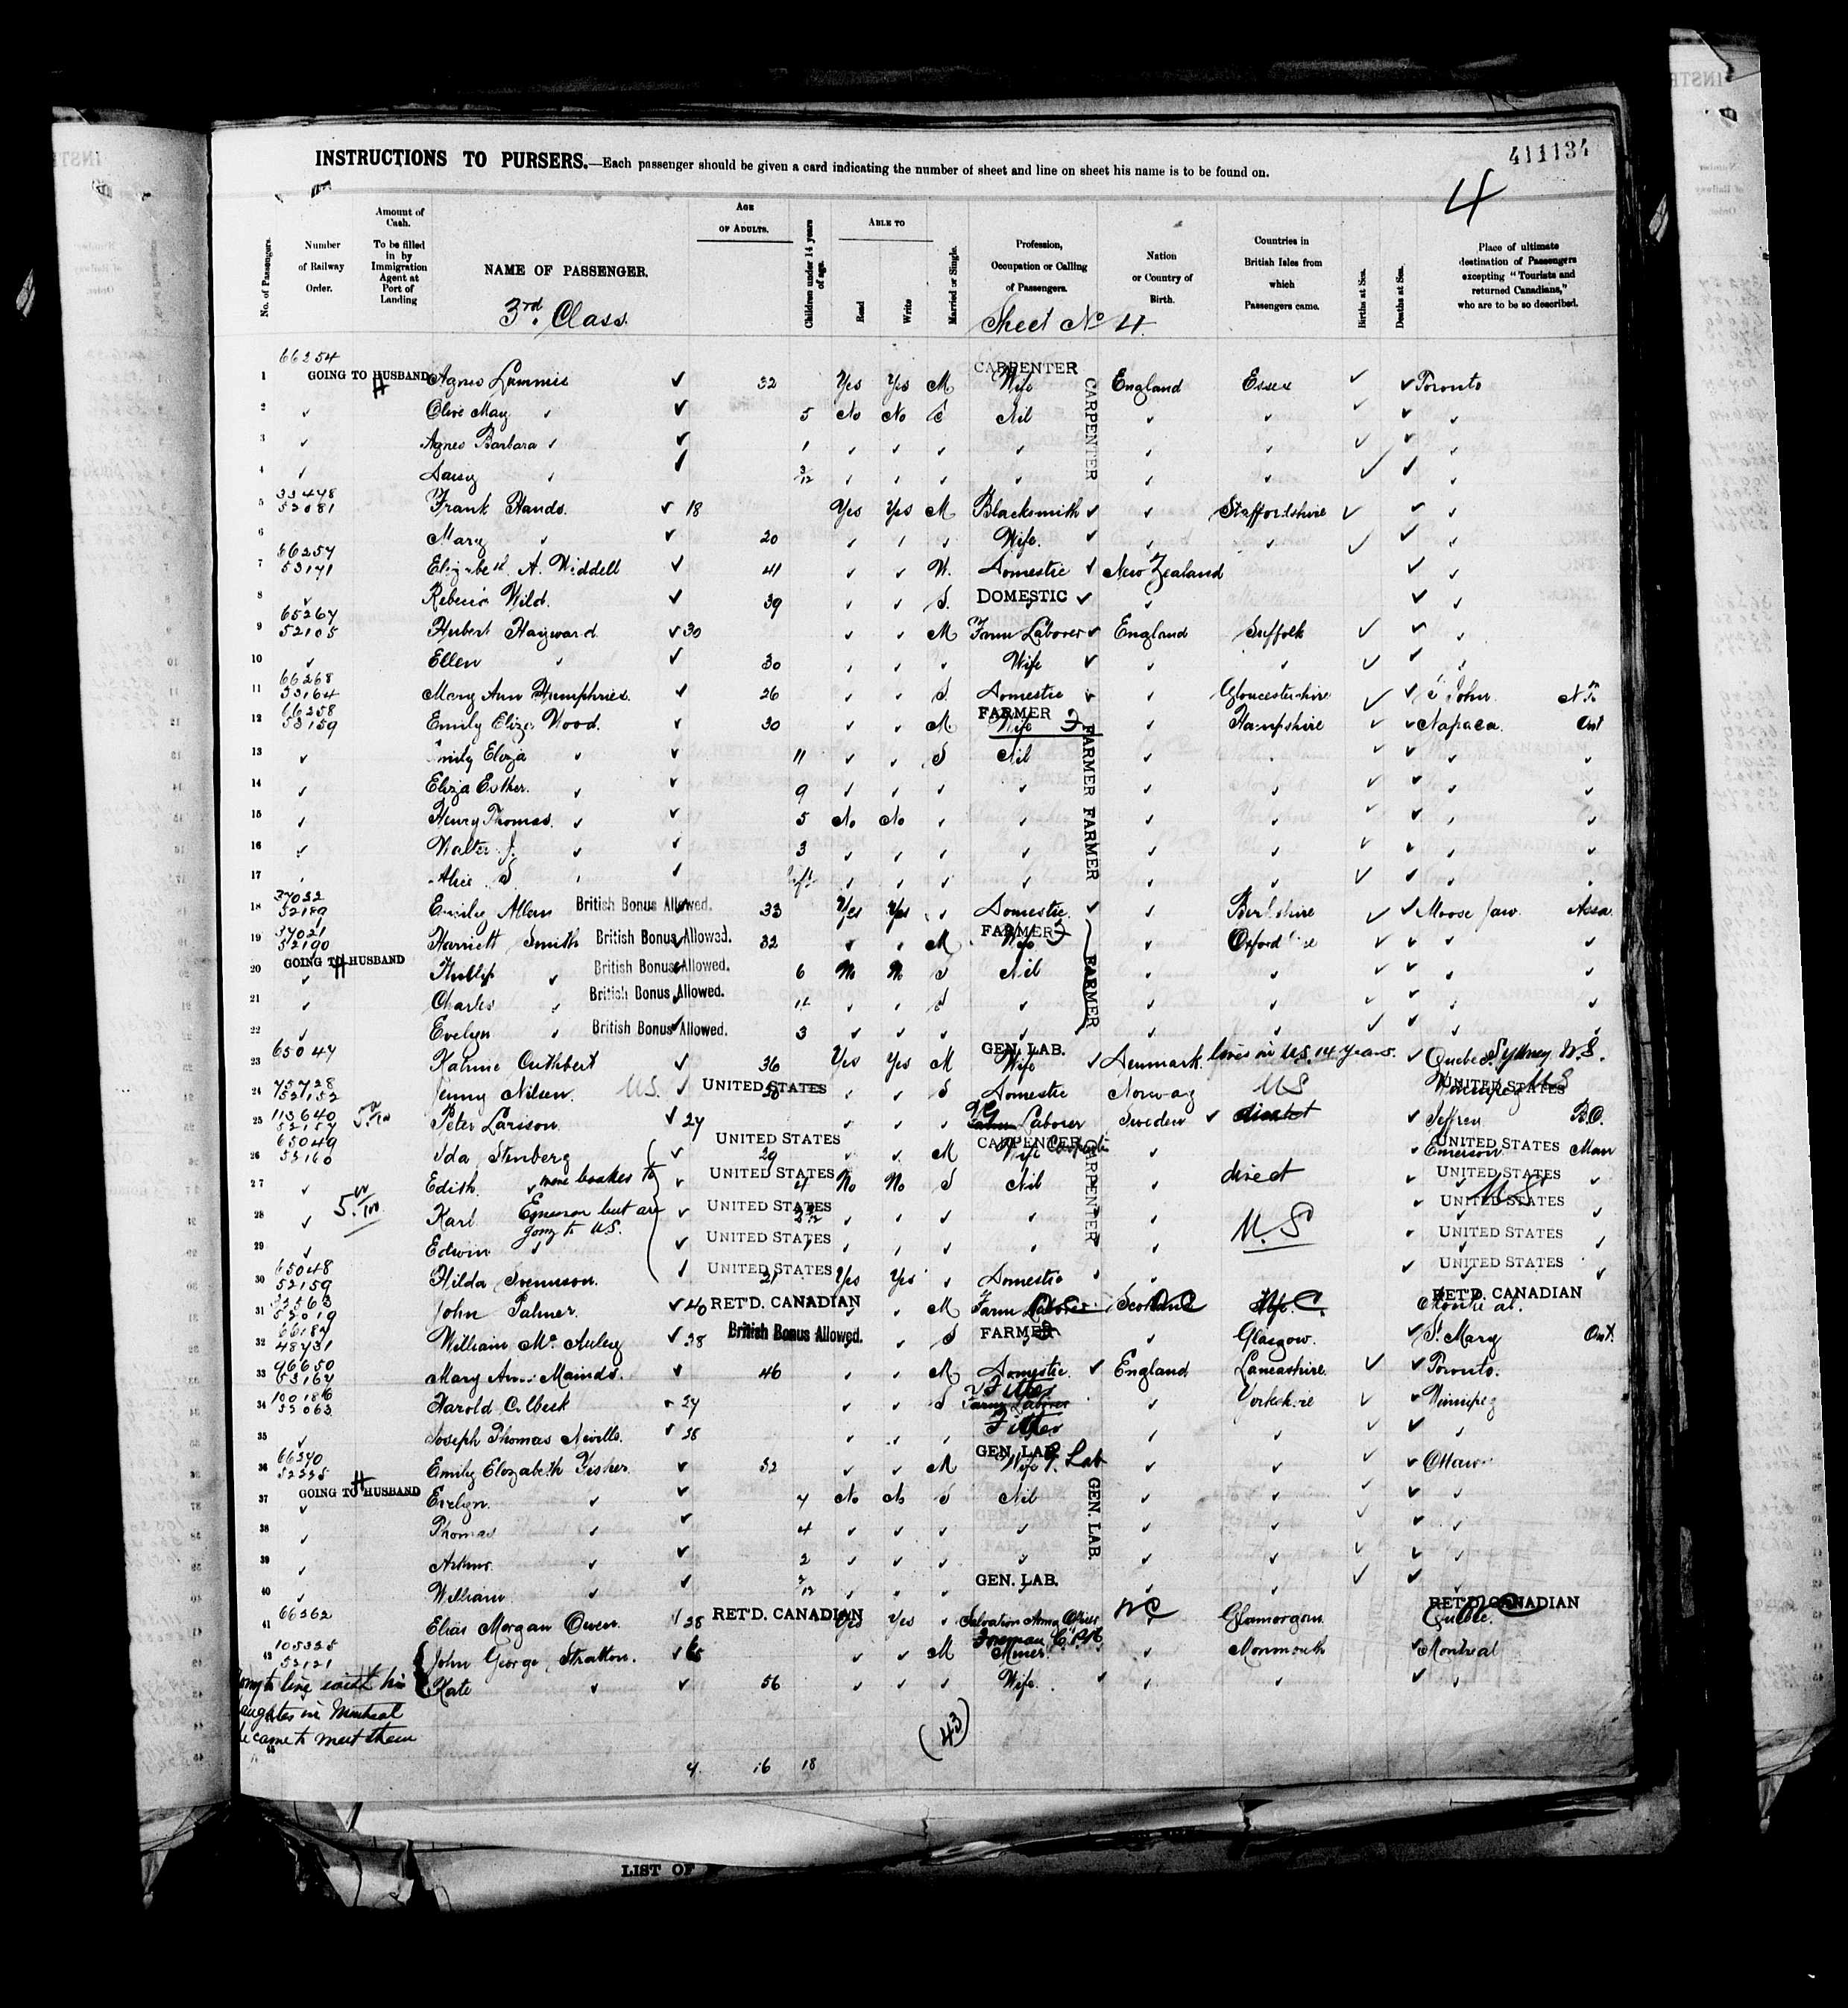 INSTRUCTIONS TO PURSERS.—Each passenger should be given a card indicating the number of sheet and line on sheet his name is to be found on.
411134
4
No. of Passengers.
Number of Railway Order.
Amount of Cash. To be filled in by Immigration Agent at Port of Landing
NAME OF PASSENGER.
3rd Class
AGE OF ADULTS.
Children under 14 years of age.
ABLE TO
Read
Write
Married or Single.
Profession, Occupation or Calling of Passengers.
Sheet No 4.
Nation or Country of Birth.
Countries in British Isles from which Passengers came.
Births at Sea.
Deaths at Sea.
Place of ultimate destination of Passengers excepting "Tourists and returned Canadians," who are to be so described.
66254 CARPENTER
1 GOING TO HUSBAND H Agnes Lummis ✓ 32 Yes Yes M Wife England Essex ✓ ✓ Toronto
CARPENTER
2 ✓ Olive May ✓ ✓ 5 No No S Nil ✓ ✓ ✓ ✓ ✓
3 ✓ Agnes Barbara ✓ ✓ 1 ✓ ✓ ✓ ✓ ✓ ✓ ✓ ✓ ✓
4 ✓ Daisy ✓ ✓ 3/12 ✓ ✓ ✓ ✓ ✓ ✓ ✓ ✓ ✓
5 33448 52081 Frank Hands. ✓ 18 Yes Yes M Blacksmith ✓ ✓ Staffordshire ✓ ✓ ✓
6 Mary ✓ ✓ 20 ✓ ✓ ✓ Wife. ✓ ✓ ✓ ✓ ✓
7 66257 53171 Elizabeth A. Widdell ✓ 41 ✓ ✓ W. Domestic ✓ New Zealand ✓ ✓
8 ✓ Rebecca Wild. ✓ 39 ✓ ✓ S. DOMESTIC ✓ ✓ ✓ ✓
9 65267 52105 Hubert Hayward ✓ 30 ✓ ✓ M Farm Laborer ✓ England Suffolk ✓ ✓ ✓
10 ✓ Ellen ✓ ✓ 30 ✓ ✓ ✓ Wife ✓ ✓ ✓ ✓ ✓ ✓
11 66268 53164 Mary Ann Humphries. ✓ 26 ✓ ✓ S Domestic ✓ ✓ Gloucestershire ✓ ✓ St John
FARMER
12 66258 53159 Emily Eliza Wood. ✓ 30 ✓ ✓ M Wife ✓ Hampshire ✓ ✓ Napaea. Ont
FARMER FARMER
13 ✓ Emily Eliza ✓ ✓ 11 ✓ ✓ S Nil ✓ ✓ ✓ ✓ ✓ ✓
14 ✓ Eliza Esther. ✓ ✓ 9 ✓ ✓ ✓ ✓ ✓ ✓ ✓ ✓ ✓ ✓
15 ✓ Henry Thomas. ✓ ✓ 5 No No ✓ ✓ ✓ ✓ ✓ ✓ ✓ ✓
16 ✓ Walter J. ✓ ✓ 3 ✓ ✓ ✓ ✓ ✓ ✓ ✓ ✓ ✓ ✓
17 ✓ Alice ✓ ✓ Inft. ✓ ✓ ✓ ✓ ✓ ✓ ✓ ✓ ✓ ✓
18 37022 52189 Emily Allen British Bonus Allowed. 33 Yes Yes ✓ Domestic. ✓ ✓ Berkshire ✓ ✓ Moose Jaw. Assa.
FARMER
19 37021 52190 Harriett Smith British Bonus Allowed. 32 ✓ ✓ M Wife ✓ Oxfordshire ✓ ✓ ✓ ✓
GOING TO HUSBAND H
FARMER
20 ✓ Phillip ✓ British Bonus Allowed. 6 No No S Nil ✓ ✓ ✓ ✓ ✓ ✓
21 ✓ Charles ✓ British Bonus Allowed. 4 ✓ ✓ S ✓ ✓ ✓ ✓ ✓ ✓ ✓
22 ✓ Evelyn ✓ British Bonus Allowed. 3 ✓ ✓ ✓ ✓ ✓ ✓ ✓ ✓ ✓ ✓
GEN. LAB.
23 65047 Katrine Cuthbert ✓ 36 Yes Yes M Wife ✓ Denmark. lives in U.S. 14 years. ✓ Quebec. Sydney N.S.
24 75728 52152 Jenny Nilsen. U.S. ✓ UNITED STATES ✓ ✓ S Domestic Norway US UNITED STATES US
25 113640 52157 Peter Larsson ✓ 27 ✓ ✓ ✓ Laborer Sweden ✓ direct ✓ B.C.
26 65049 53160 Ida Stenberg ✓ UNITED STATES 29 ✓ ✓ M CARPENTER Wife ✓ UNITED STATES Emerson Man
were bookes to Emerson but are going to U.S.
CARPENTER
27 ✓ Edith. ✓ UNITED STATES 4 No No S Nil ✓ direct ✓ UNITED STATES ✓
28 ✓ Karl ✓ UNITED STATES ✓ ✓ ✓ ✓ ✓ U.S ✓ UNITED STATES US ✓
29 ✓ Edwin ✓ ✓ UNITED STATES ✓ ✓ ✓ ✓ ✓ ✓ UNITED STATES ✓
30 65048 52159 Hilda Svensson. ✓ UNITED STATES 21 Yes Yes ✓ Domestic ✓ ✓ ✓ UNITED STATES ✓
31 John Palmer. ✓ 40 RET'D. CANADIAN ✓ ✓ M Farm Laborer Scotland RET'D. CANADIAN Montreal.
32 66184 48731 William Mc Auley ✓ 28 British Bonus Allowed. ✓ S FARMER ✓ Glasgow. ✓ St. Mary Ont.
33 96650 53167 Mary Ann Mainds. ✓ 46 ✓ ✓ M Domestic. ✓ England Lancashire. ✓ ✓ Toronto.
34 Harold Colbeck ✓ 27 ✓ ✓ S Farm Laborer Fitter ✓ Yorkshire ✓ ✓ Winnipeg
35 ✓ Joseph Thomas Nevills. ✓ 38 ✓ ✓ ✓ Fitter ✓ ✓ ✓ ✓ ✓
GEN. LAB.
36 66240 Emily Elozabeth Fisher. ✓ 32 ✓ ✓ M Wife G. Lab ✓ ✓ ✓ ✓ Ottawa
GOING TO HUSBAND H
GEN. LAB.
37 ✓ Evelyn. ✓ ✓ 7 No No S Nil ✓ ✓ ✓ ✓ ✓
38 ✓ Thomas ✓ ✓ 4 ✓ ✓ ✓ ✓ ✓ ✓ ✓ ✓ ✓
39 ✓ Arthur. ✓ ✓ 2 ✓ ✓ ✓ ✓ ✓ ✓ ✓ ✓ ✓
GEN. LAB.
40 ✓ William ✓ ✓ ✓ ✓ ✓ ✓ ✓ ✓ ✓ ✓ ✓
41 66262 Elias Morgan Owen. ✓ 28 RET'D. CANADIAN Yes Yes ✓ Salvation Army Officer Glamorgan. RET'D. CANADIAN Quebec.
Foreman C.P.R.
42 105325 52121 John George Stratton. ✓ 65 ✓ ✓ M Miner. Monmouth ✓ Montreal
43 Kate ✓ ✓ 56 ✓ ✓ ✓ Wife. ✓ ✓ ✓ ✓ ✓ ✓
going to live with his
daughter in Montreal
he came to meet them
(43)
9. 16 18
LIST OF